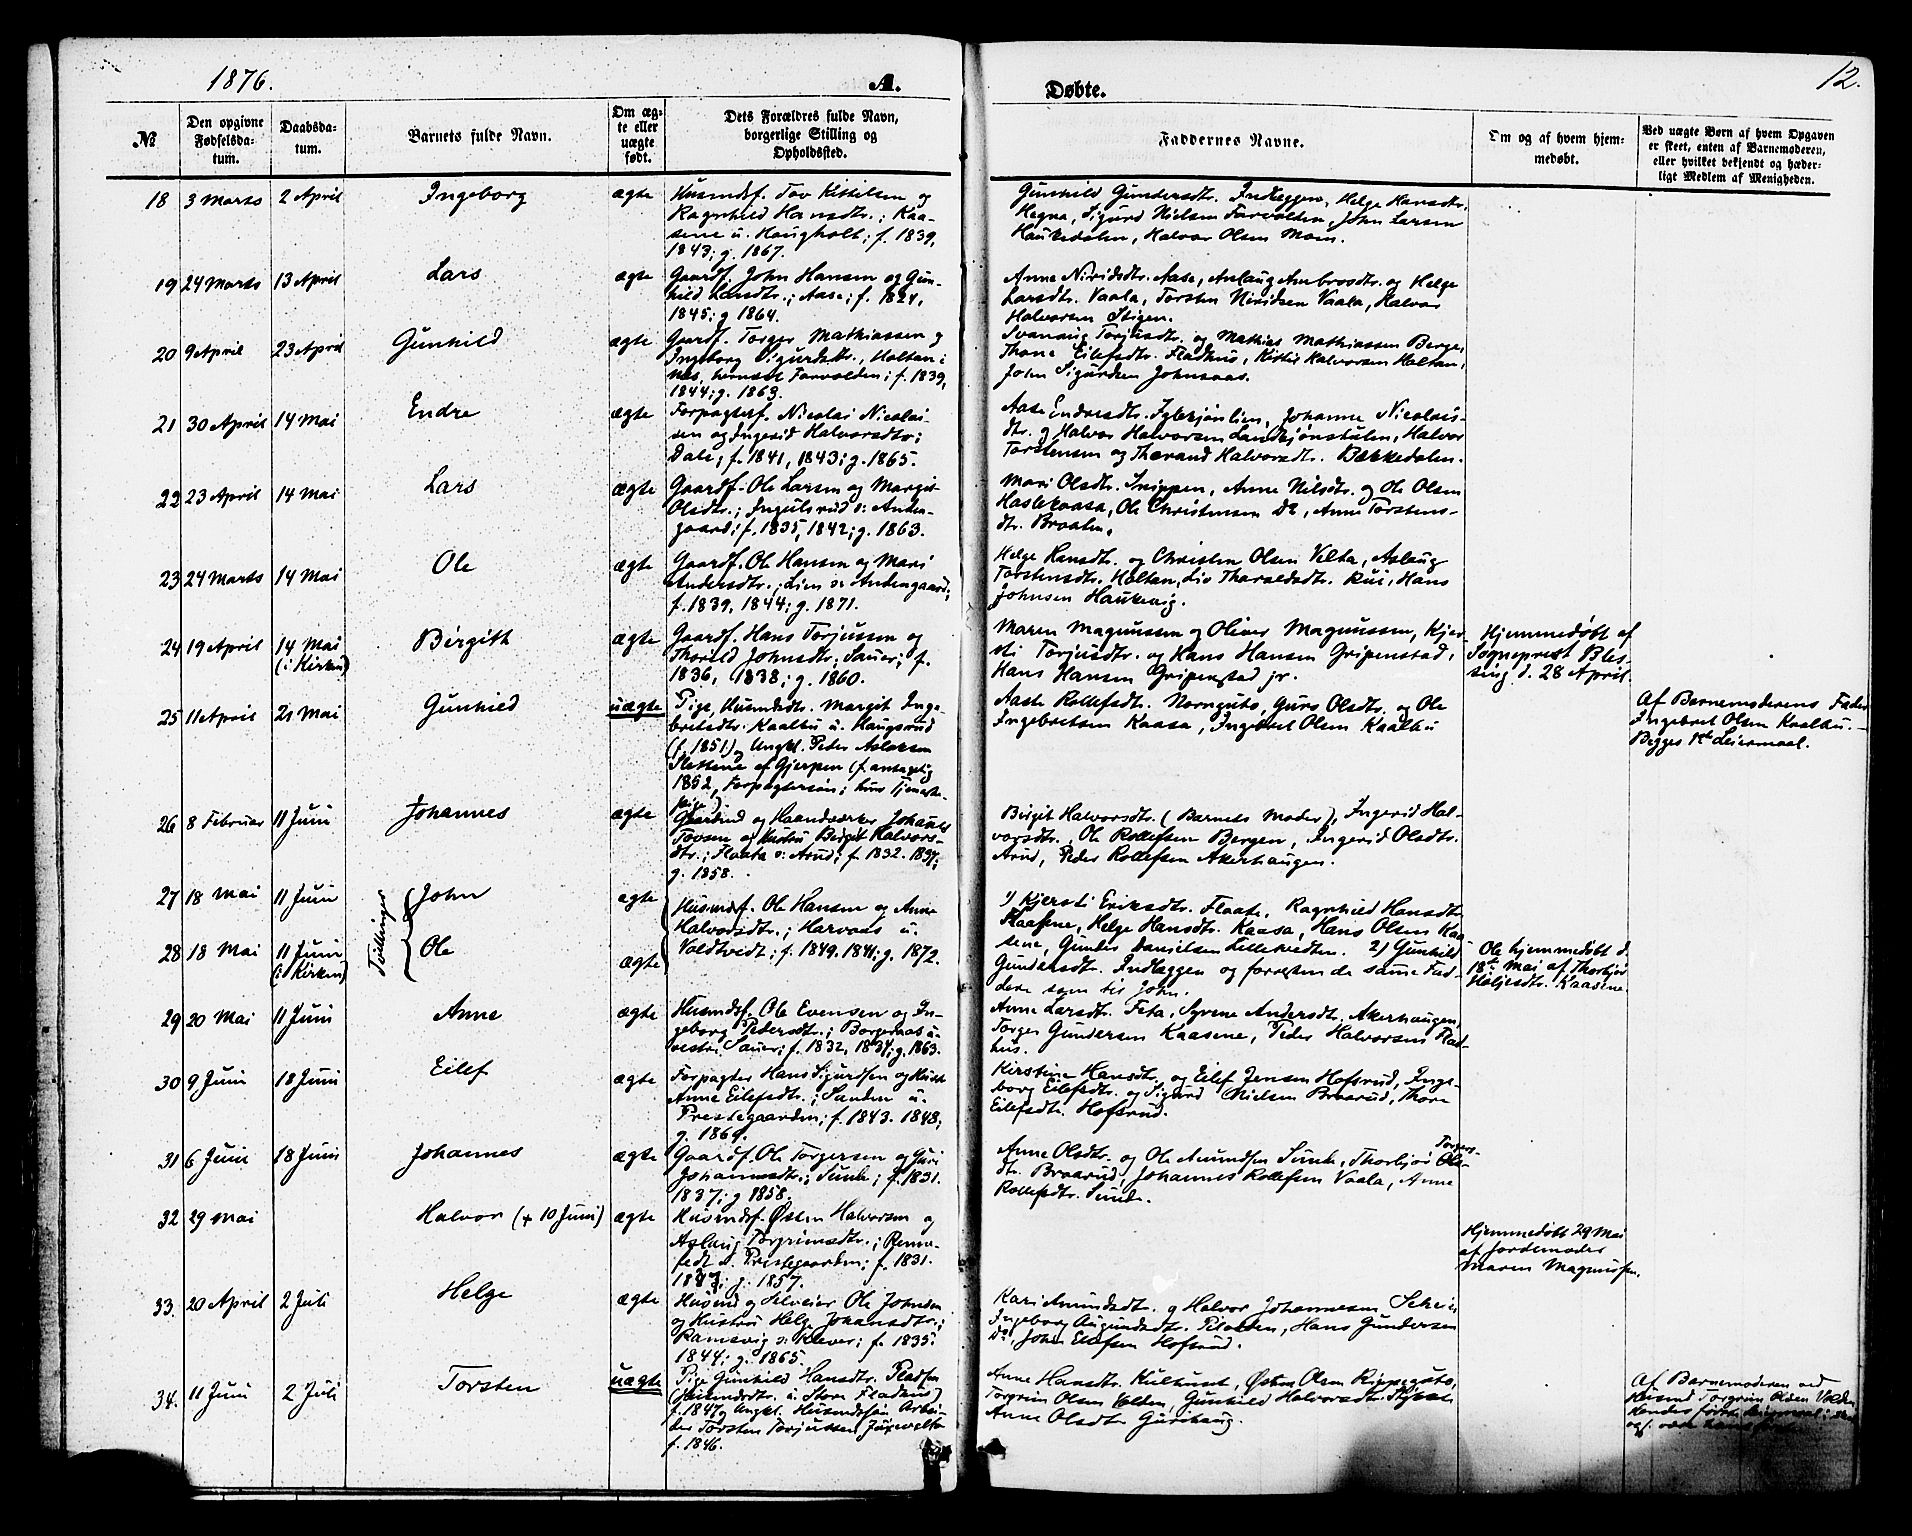 1876.
A.
Døbte.
12.
№
Den opgivne Fødselsdatum.
Daabsdatum.
Barnets fulde Navn.
Om ægte eller uægte født.
Dets Forældres fulde Navn, borgerlige Stilling og Opholdssted.
Faddernes Navne.
Om og af hvem hjemmedøbt.
Ved uægte Børn af hvem Opgaven er skeet, enten af Barnemoderen, eller hvilket bekjendt og hæderligt Medlem af Menigheden.
18 3 Marts 2 April Ingeborg ægte
Husmdsf. Tov Kittilsen og
Ragnhild Hansdtr.; Kaa-
sene u. Haugholt; f. 1839,
1843; g. 1867.
Gunhild Gundersdtr. Indlæggen, Helge Hansdtr.
Hegna, Sigurd Nielsen Farvolden, John Larsen
Haukedalen, Halvor Olsen Moen.
19 24 Marts 13 April Lars ægte
Gaardf. John Hansen og Gun-
hild Larsdtr.; Aase; f. 1824,
1845; g 1864.
Anne Niridsdtr. Aase, Aslaug Ambrosdtr. og Helge
Larsdtr. Vaala, Torsten Niridsen Vaala, Halvor
Halvorsen Stigen.
20 9 April 23 April Gunhild ægte
Gaardf. Torger Mathiassen og
Ingeborg Sigurdsdtr., Holtan i
Farvolden; f. 1839,
1844; g. 1863.
Svanaug Torjusdtr. og Mathias Mathiassen Berge,
Thone Eilefsdtr. Fladhus, Kittil Halvorsen Holtan,
John Sigurdsen Johnsaas.
21 30 April 14 Mai Endre ægte
Forpagterf. Nicolai Nicolai-
sen og Ingerid Halvorsdtr.;
Dale; f. 1841, 1843; g. 1865.
Aase Endresdtr. Johanne Nicolais-
dtr. og Halvor Halvorsen Halvor
Torstensen og Tharand Halvorsdtr. Bækkedalen.
22 23 April 14 Mai Lars ægte
Gaardf. Ole Larsen og Margit
Olsdtr.; Ingulsrud s: Anden-
gaard; f. 1835, 1842; g. 1863.
Mari Olsdtr. Snippen, Anne Nilsdtr. og Ole Olsen
Haslekaasa, Ole Christensen Do, Anne Torstens-
dtr. Braaten.
23 24 Marts 14 Mai Ole ægte
Gaardf. Ole Hansen og Mari
Andersdtr.; Lien s: Andengaard;
f. 1839, 1844; g. 1871.
Helge Hansdtr. og Christen Olsen Velta, Aslaug
Torstensdtr. Holtan, Liv Tharaldsdtr. Rui, Hans
Johnsen Haukevig.
24 19 April 14 Mai (i Kirken) Birgith ægte
Gaardf. Hans Torjussen og
Thorild Johnsdtr.; Sauer; f.
1836, 1838; g. 1860.
Maren Magnussen og Oliver Magnussen, Kjer-
sti Torjusdtr. og Hans Hansen Gripenstad,
Hans Hansen Gripenstad jr.
Hjemmedøbt af
Sogneprest Bles-
sing d. 28 April.
25 11 April 21 Mai Gunhild uægte
Pige, Husmdsdtr. Margit Inge-
bretsdtr. Kaalbu u. Haugsrud
(f. 1851) og Ungkl. Peder Aslaksen
Slettene af Gjerpen (f. antagelig
1852, Forpagtersøn; hun Tjeneste-
pige).
Aaste Rollefsdtr. Norngutu, Guro Olsdtr. og Ole
Ingebretsen Kaasa, Ingebret Olsen Kaalbu
Af Barnemoderens Fader
Ingebret Olsen Kaalbu. –
Begges 1ste Leiermaal.
26 8 Februar 11 Juni Johannes ægte
Gaardmd og Haandværker Johannes
Tovsen og Hustru Birgit Halvors-
dtr.; Flaata s: Aarud; f. 1832. 1834;
g. 1858.
Birgit Halvorsdtr. (Barnets Moder), Ingerid Hal-
vorsdtr., Ole Rollefsen Bergen, Ingerid Olsdtr.
Aarud, Peder Rollefsen Akerhaugen.
Tvillinger
27 18 Mai 11 Juni John ægte
28 18 Mai 11 Juni (i Kirken) Ole ægte
Husmdsf. Ole Hansen og Anne
Halvorsdtr.; Harvaas u.
Valdtvedt; f. 1849. 1841; g. 1872.
1) Kjersti Eriksdtr. Flaate, Ragnhild Hansdtr.
Kaasene, Helge Hansdtr. Kaasa, Hans Olsen Kaa-
sene, Gunder Danielsen Lillekvedten. 2) Gunhild
Gundersdtr. Indlæggen og forresten de samme Fad-
dere som til John.
Ole hjemmedøbt d.
18de Mai af Thorbjør
Høljesdtr. Kaasene.
29 20 Mai 11 Juni Anne ægte
Husmdsf. Ole Evensen og In-
geborg Pedersdtr.; Borgernæs u.
vestre Sauer; f. 1832, 1834; g. 1863.
Anne Larsdtr. Feta, Syrene Andersdt. Akerhaugen,
Torger Gundersen Kaasene, Peder Halvorsen Flad-
hus.
30 9 Juni 18 Juni Eilef ægte
Forpagter Hans Sigurdsen og Hustr.
Anne Eilefsdtr.; Sanden u.
Prestegaarden; f. 1843. 1848;
g. 1869.
Kirstine Hansdtr. og Eilef Jensen Hofsrud, Inge-
borg Eilefsdtr. og Sigurd Nielsen Braarud, Thore
Eilefsdtr. Hofsrud.
31 6 Juni 18 Juni Johannes ægte
Gaardf. Ole Torgersen og Guri
Johannesdtr.; Sunde; f. 1831.
1837; g 1858.
Anne Olsdtr. og Ole Amundsen Sunde, Thorbjør Torgers-
dtr. Braarud, Johannes Rollefsen Vaala, Anne
Rollefsdtr. Sunde.
32 29 Mai Halvor (+ 10 Juni) ægte
Husmdsf. Østen Halvorsen og
Aslaug Torgrimsdtr.;
u. Prestegaarden; f. 1831.
g. 1857.
Hjemmedøbt 29 Mai
af Jordemoder
Maren Magnussen.
33. 20 April 2 Juli Helge ægte
Husmd og Selveier Ole Johnsen
og Hustru Helge Johansdtr.;
Ramsvig s: Klever; f. 1835.
1844; g. 1865.
Kari Amundsdtr. og Halvor Johannesen
Ingeborg Augundsdtr. Hans Gundersen
Do, John Eilefsen Hofsrud.
34. 11 Juni 2 Juli Torsten uægte
Pige Gunhild Hansdtr. Pladsen
(Husmdsdtr. u. Store Fladhus)
f. 1847 og Ungkl. Husmdssøn Arbei-
der Torsten Torjussen
f. 1846.
Anne Hansdtr. Østen Olsen
Torgrim Olsen Volden, Gunhild Halvorsdtr.
Anne Olsdtr Gurihaug.
Af Barnemoderen ved
Husmd Torgrim Olsen Volden
Hendes første